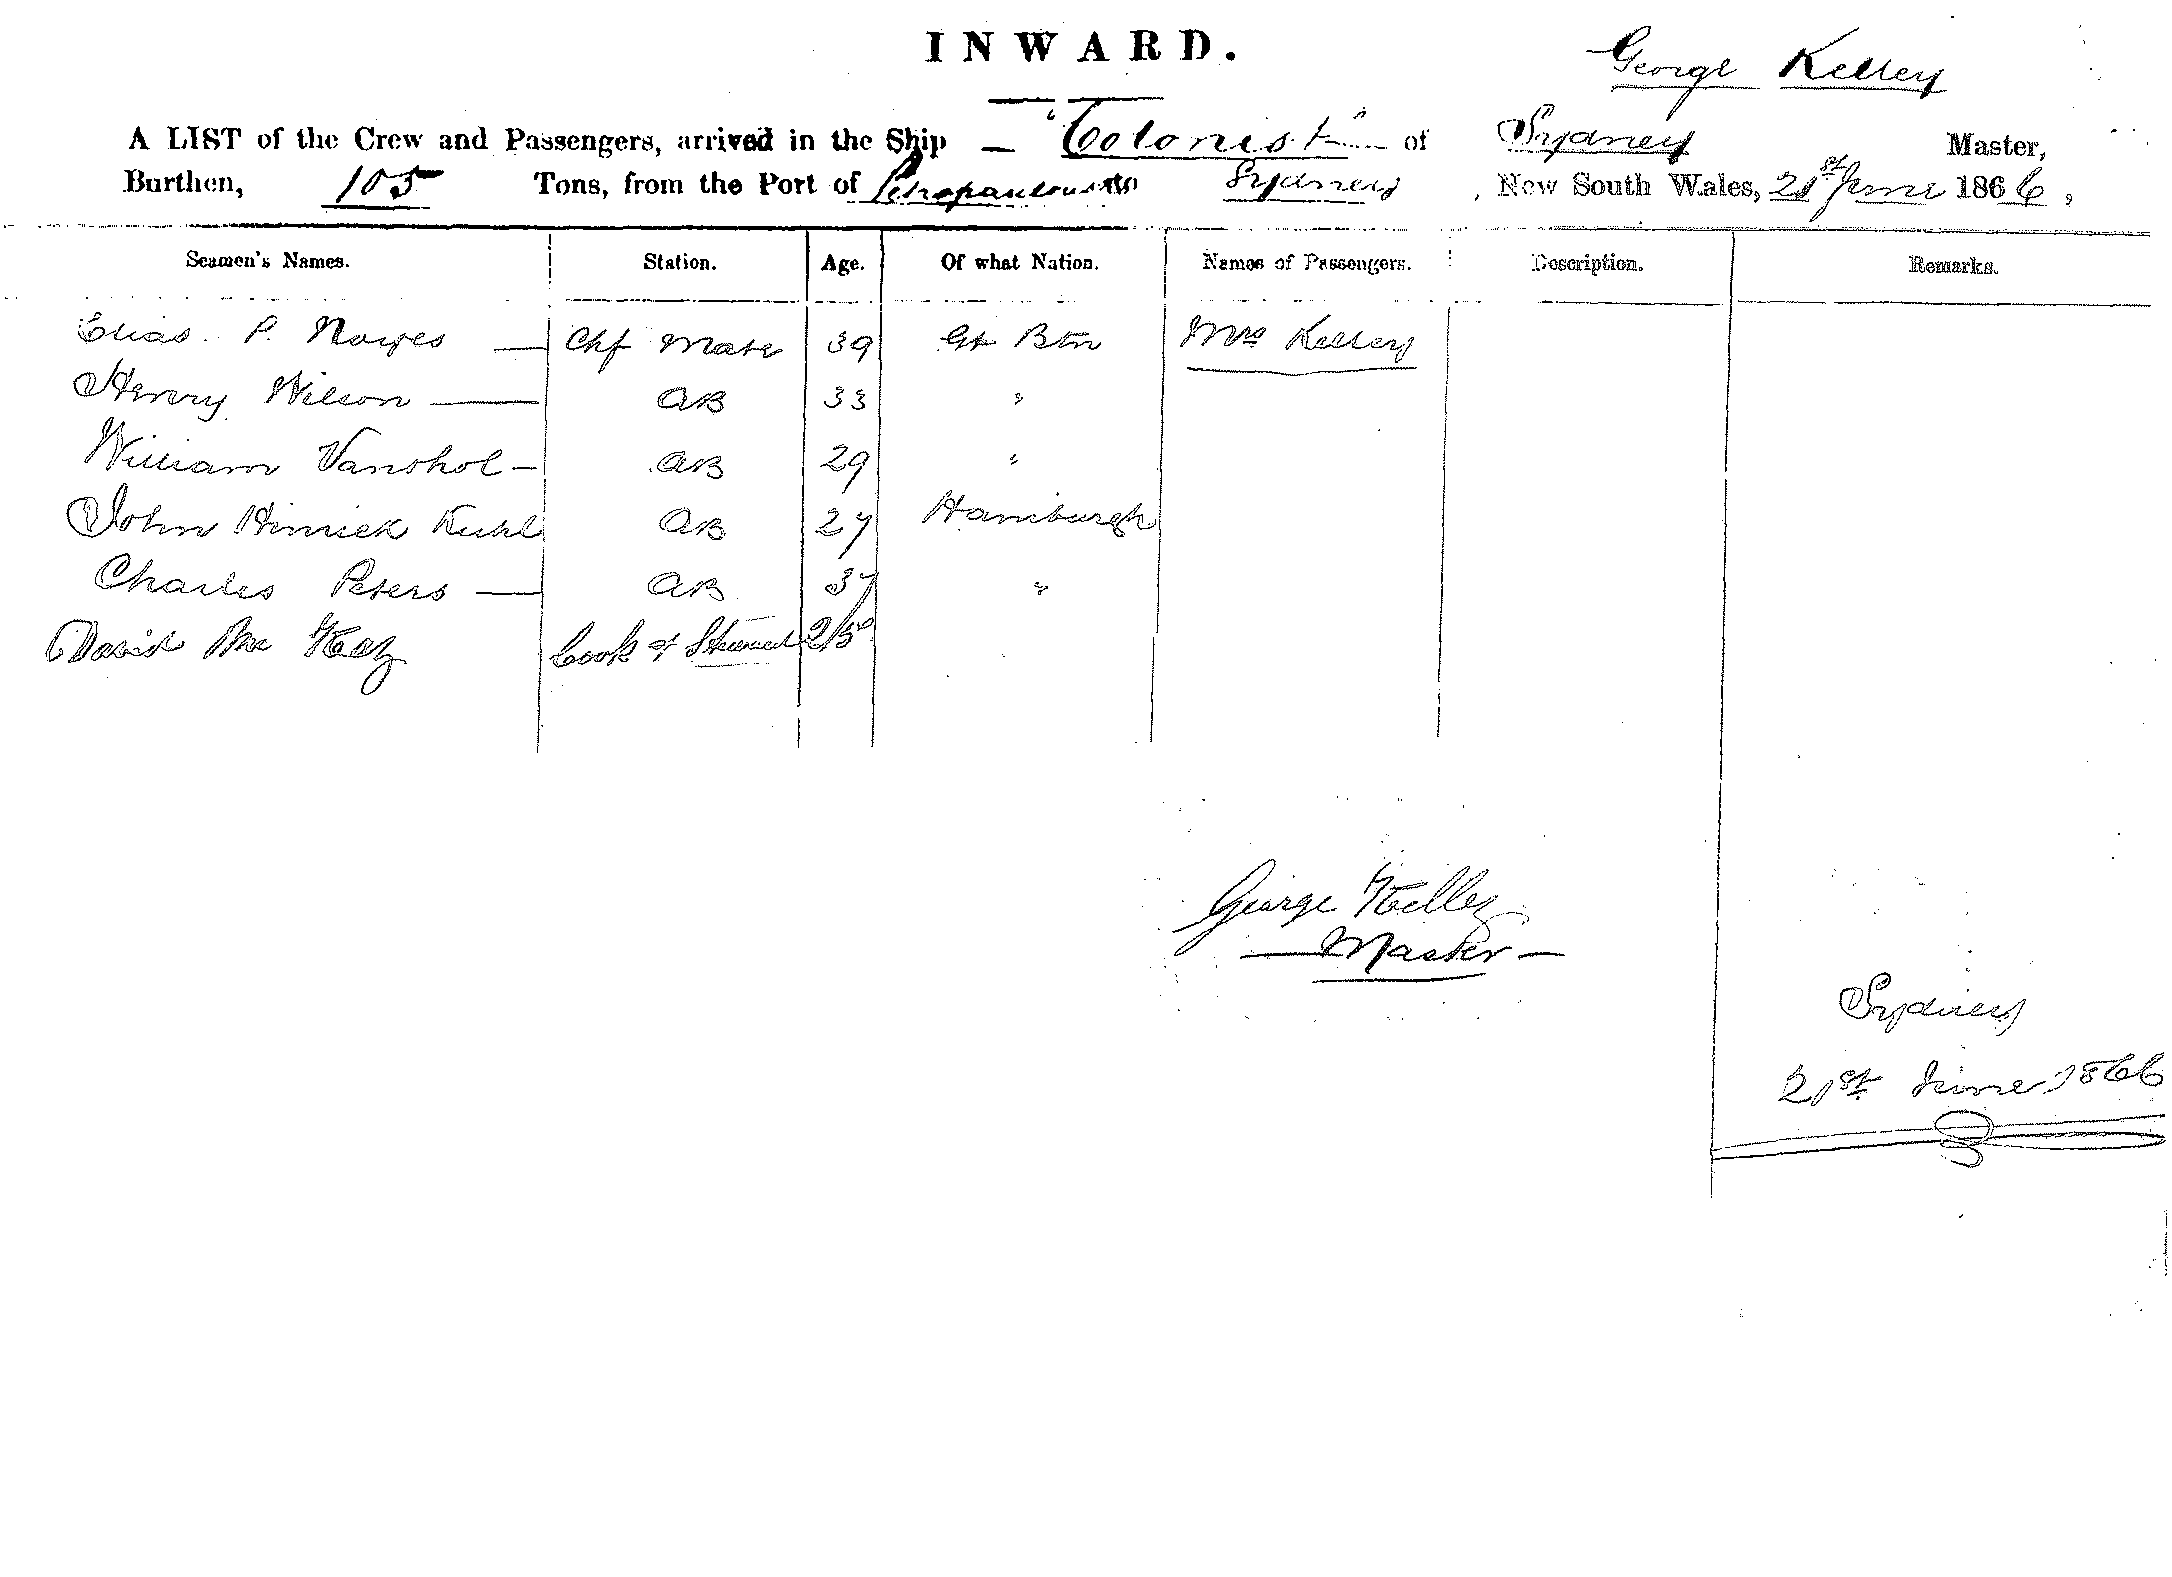 INWARD.
George Kelley
A LIST of the Crew and Passengers, arrived in the Ship — "Colonist" of Sydney Master,
Burthen, 105 Tons, from the Port of to Sydney, New South Wales, 21st June 1866,
Seamen's Names. Station. Age. Of what Nation. Names of Passengers. Description. Remarks.
Elias P. Noyes — Chf Mate 39 Gt Btn Mrs Kelley
Henry Wilson — AB 33 "
William Vanohol — AB 29 "
John Hinrick Kuhl AB 27 Hamburgh
Charles Peters — AB 37 "
David Mc Cook & Steward 25
George Kelley
— Master —
Sydney
21st June 1866